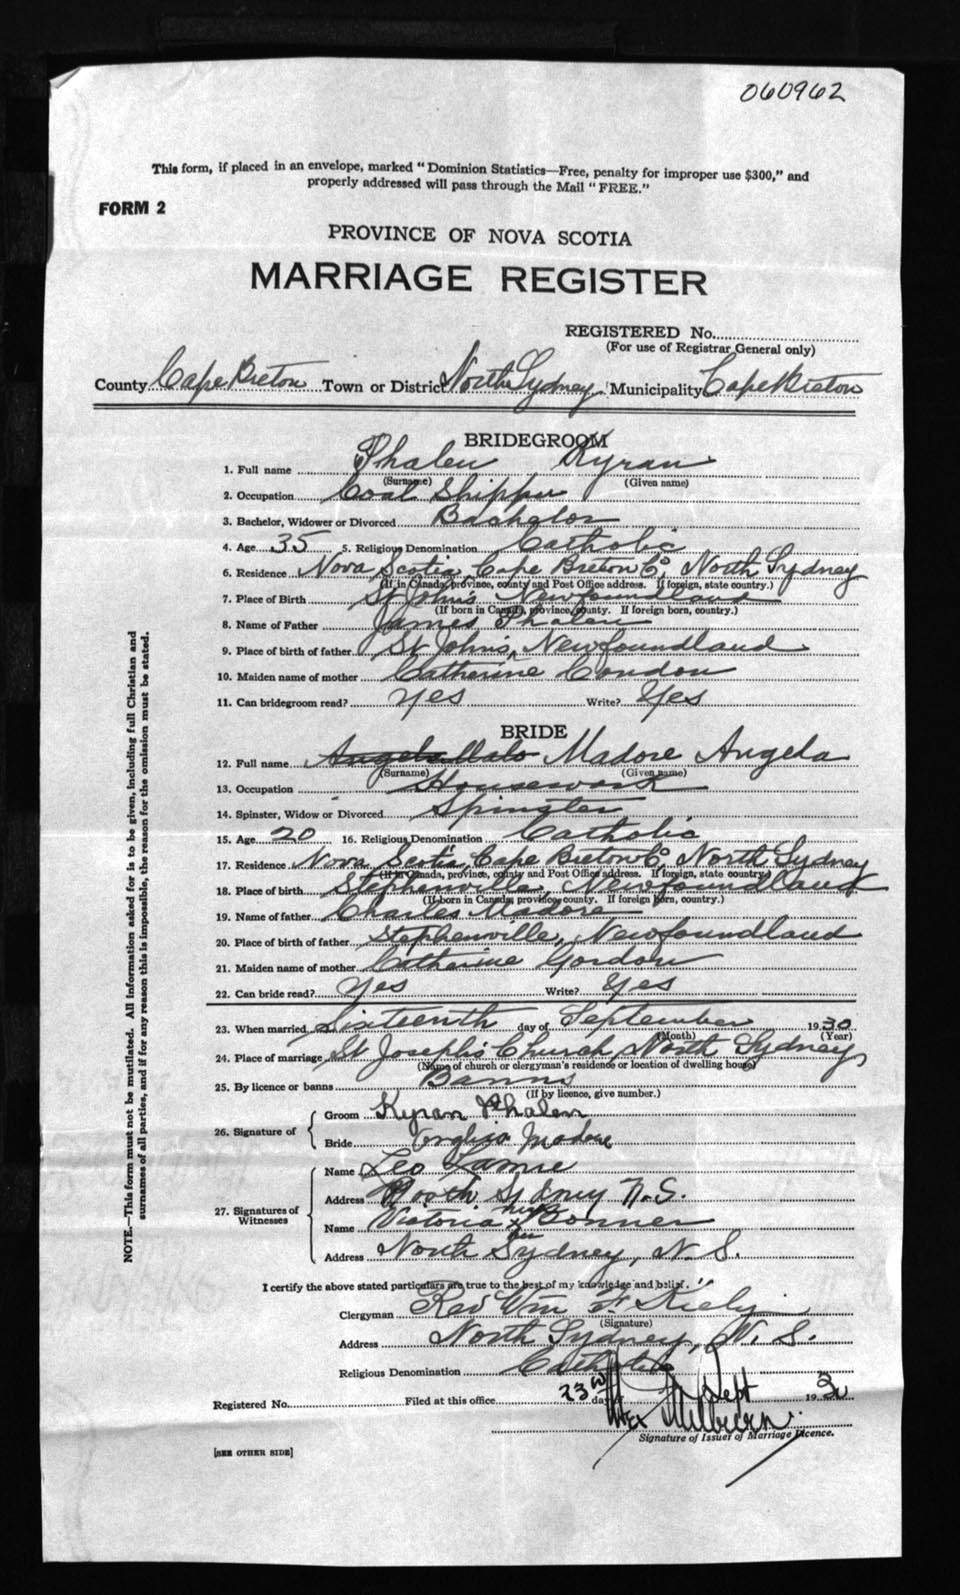 060962
This form, if placed in an envelope, marked "Dominion Statistics—Free, penalty for improper use $300," and
properly addressed will pass through the Mail "FREE."
FORM 2
PROVINCE OF NOVA SCOTIA
MARRIAGE REGISTER
REGISTERED No.
(For use of Registrar General only)
County Cape Breton Town or District North Sydney Municipality Cape Breton
BRIDEGROOM
1. Full name Phalen Kyran
(Surname) (Given name)
2. Occupation Coal Shipper
3. Bachelor, Widower or Divorced Bachelor
4. Age 35 5. Religious Denomination Catholic
6. Residence Nova Scotia, Cape Breton Co, North Sydney
(If in Canada, province, county and Post Office address. If foreign, state country.)
7. Place of Birth St John's Newfoundland
(If born in Canada, province, county. If foreign born, country.)
8. Name of Father James Phalen
9. Place of birth of father St Johns, Newfoundland
10. Maiden name of mother Catherine Condon
11. Can bridegroom read? Yes Write? Yes
BRIDE
12. Full name Angela Madore Angela
(Surname) (Given name)
13. Occupation Housework
14. Spinster, Widow or Divorced Spinster
15. Age 20 16. Religious Denomination Catholic
17. Residence Nova Scotia, Cape Breton Co, North Sydney
(If in Canada, province, county and Post Office address. If foreign, state country.)
18. Place of birth Stephenville, Newfoundland
(If born in Canada, province, county. If foreign born, country.)
19. Name of father Charles Madore
20. Place of birth of father Stephenville, Newfoundland
21. Maiden name of mother Catherine Gordon
22. Can bride read? Yes Write? Yes
23. When married Sixteenth day of September 1930
(Month) (Year)
24. Place of marriage St Joseph's Church, North Sydney
(Name of church or clergyman's residence or location of dwelling house)
25. By licence or banns Banns
(If by licence, give number.)
26. Signature of
Groom Kyran Phalen
Bride Madore
27. Signatures of Witnesses
Name Leo
Address North Sydney N.S.
Name Victoria her x Bonner
Address North Sydney, N.S.
I certify the above stated particulars are true to the best of my knowledge and belief.
Clergyman Rev Wm F. Kiely
(Signature)
Address North Sydney, N.S.
Religious Denomination Catholic
Registered No. Filed at this office 23rd day of Sept 1930
Signature of Issuer of Marriage Licence.
[SEE OTHER SIDE]
NOTE.—This form must not be mutilated. All information asked for is to be given, including full Christian and
surnames of all parties, and if for any reason this is impossible, the reason for the omission must be stated.